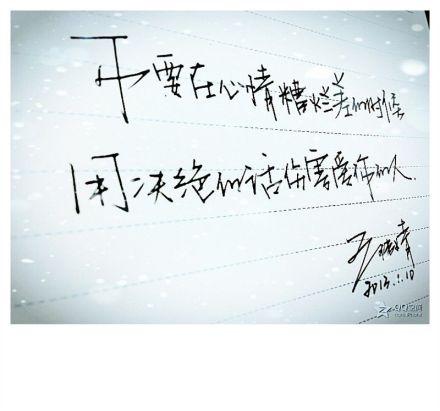 不要在心情糟糕的时候
用决绝的话伤害爱你的人.
2013.1.10
QQ空间